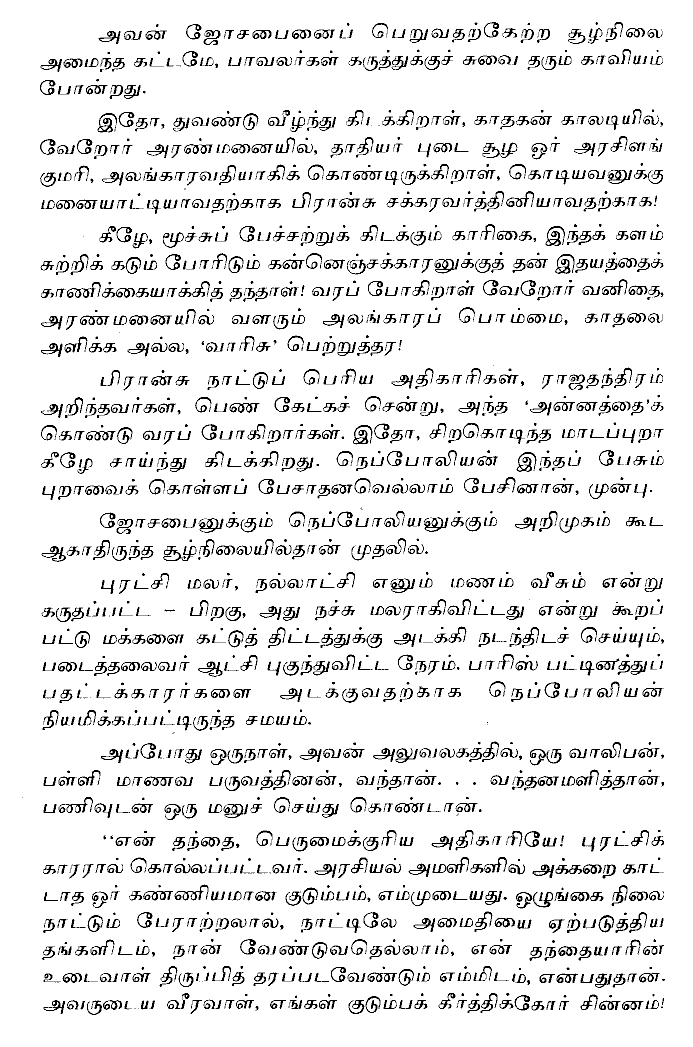 அவன் ஜோசபைனைப் பெறுவதற்கேற்ற சூழ்நிலை
அமைந்த கட்டமே, பாவலர்கள் கருத்துக்குச் சுவை தரும் காவியம்
போன்றது.
இதோ, துவண்டு வீழ்ந்து கிடக்கிறாள், காதகன் காலடியில்,
வேறோர் அரண்மனையில், தாதியர் புடை சூழ ஓர் அரசிளங்
குமரி, அலங்காரவதியாகிக் கொண்டிருக்கிறாள், கொடியவனுக்கு
மனையாட்டியாவதற்காக பிரான்சு சக்கரவர்த்தினியாவதற்காக!
கீழே, மூச்சுப் பேச்சற்றுக் கிடக்கும் காரிகை, இந்தக் களம்
சுற்றிக் கடும் போரிடும் கன்னெஞ்சக்காரனுக்குத் தன் இதயத்தைக்
காணிக்கையாக்கித் தந்தாள்! வரப் போகிறாள் வேறோர் வனிதை,
அரண்மனையில் வளரும் அலங்காரப் பொம்மை, காதலை
அளிக்க அல்ல, ‘வாரிசு’ பெற்றுத்தர!
பிரான்சு நாட்டுப் பெரிய அதிகாரிகள், ராஜதந்திரம்
அறிந்தவர்கள், பெண் கேட்கச் சென்று, அந்த ‘அன்னத்தை’க்
கொண்டு வரப் போகிறார்கள். இதோ, சிறகொடிந்த மாடப்புறா
கீழே சாய்ந்து கிடக்கிறது. நெப்போலியன் இந்தப் பேசும்
புறாவைக் கொள்ளப் பேசாதனவெல்லாம் பேசினான், முன்பு.
ஜோசபைனுக்கும் நெப்போலியனுக்கும் அறிமுகம் கூட
ஆகாதிருந்த சூழ்நிலையில்தான் முதலில்.
புரட்சி மலர், நல்லாட்சி எனும் மணம் வீசும் என்று
கருதப்பட்ட – பிறகு, அது நச்சு மலராகிவிட்டது என்று கூறப்
பட்டு மக்களை கட்டுத் திட்டத்துக்கு அடக்கி நடந்திடச் செய்யும்,
படைத்தலைவர் ஆட்சி புகுந்துவிட்ட நேரம். பாரிஸ் பட்டினத்துப்
பதட்டக்காரர்களை அடக்குவதற்காக நெப்போலியன்
நியமிக்கப்பட்டிருந்த சமயம்.
அப்போது ஒருநாள், அவன் அலுவலகத்தில், ஒரு வாலிபன்,
பள்ளி மாணவ பருவத்தினன், வந்தான். . . வந்தனமளித்தான்,
பணிவுடன் ஒரு மனுச் செய்து கொண்டான்.
‘‘என் தந்தை, பெருமைக்குரிய அதிகாரியே! புரட்சிக்
காரரால் கொல்லப்பட்டவர். அரசியல் அமளிகளில் அக்கறை காட்
டாத ஓர் கண்ணியமான குடும்பம், எம்முடையது. ஒழுங்கை நிலை
நாட்டும் பேராற்றலால், நாட்டிலே அமைதியை ஏற்படுத்திய
தங்களிடம், நான் வேண்டுவதெல்லாம், என் தந்தையாரின்
உடைவாள் திருப்பித் தரப்படவேண்டும் எம்மிடம், என்பதுதான்.
அவருடைய வீரவாள், எங்கள் குடும்பக் கீர்த்திக்கோர் சின்னம்!